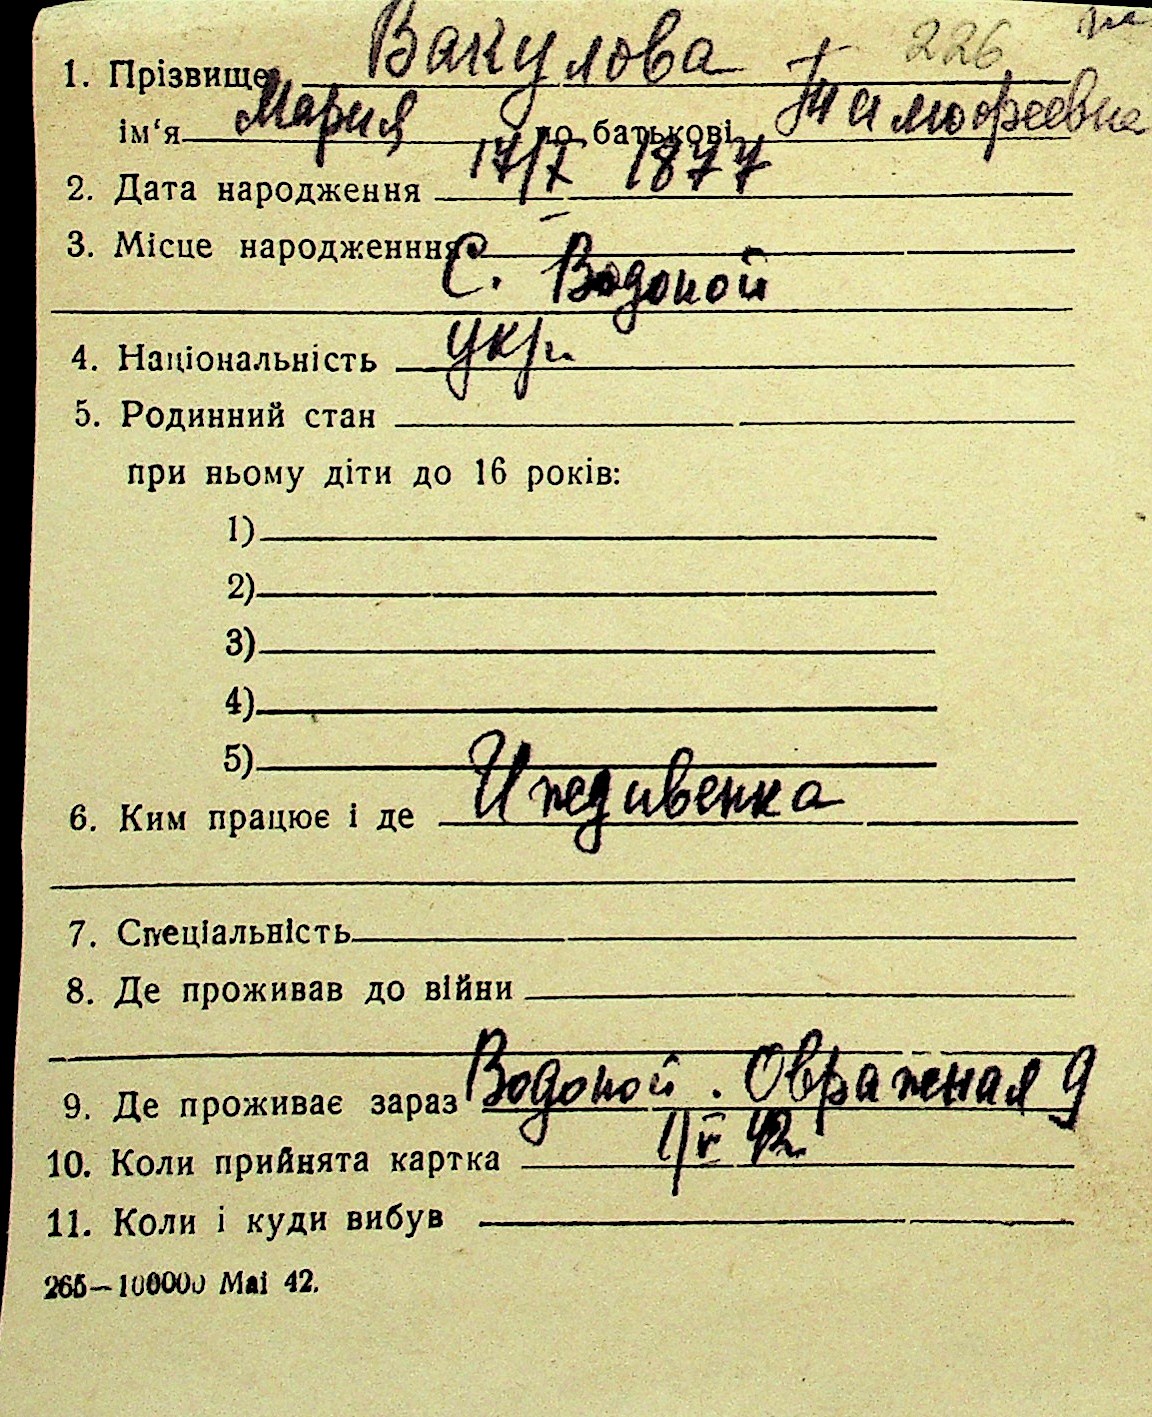 226
1. Прізвище Вакулова
ім‘я Мария по батькові Тимофеевна
2. Дата народження 17/X 1877
3. Місце народженння С. Водопой
4. Національність укр.
5. Родинний стан
при ньому діти до 16 років:
1)
2)
3)
4)
5)
6. Ким працює і де Иждивенка
7. Спеціальність
8. Де проживав до війни
9. Де проживає зараз Водопой. Овражная 9
10. Коли прийнята картка 1/V 42
11. Коли і куди вибув
265—100000 Mai 42.